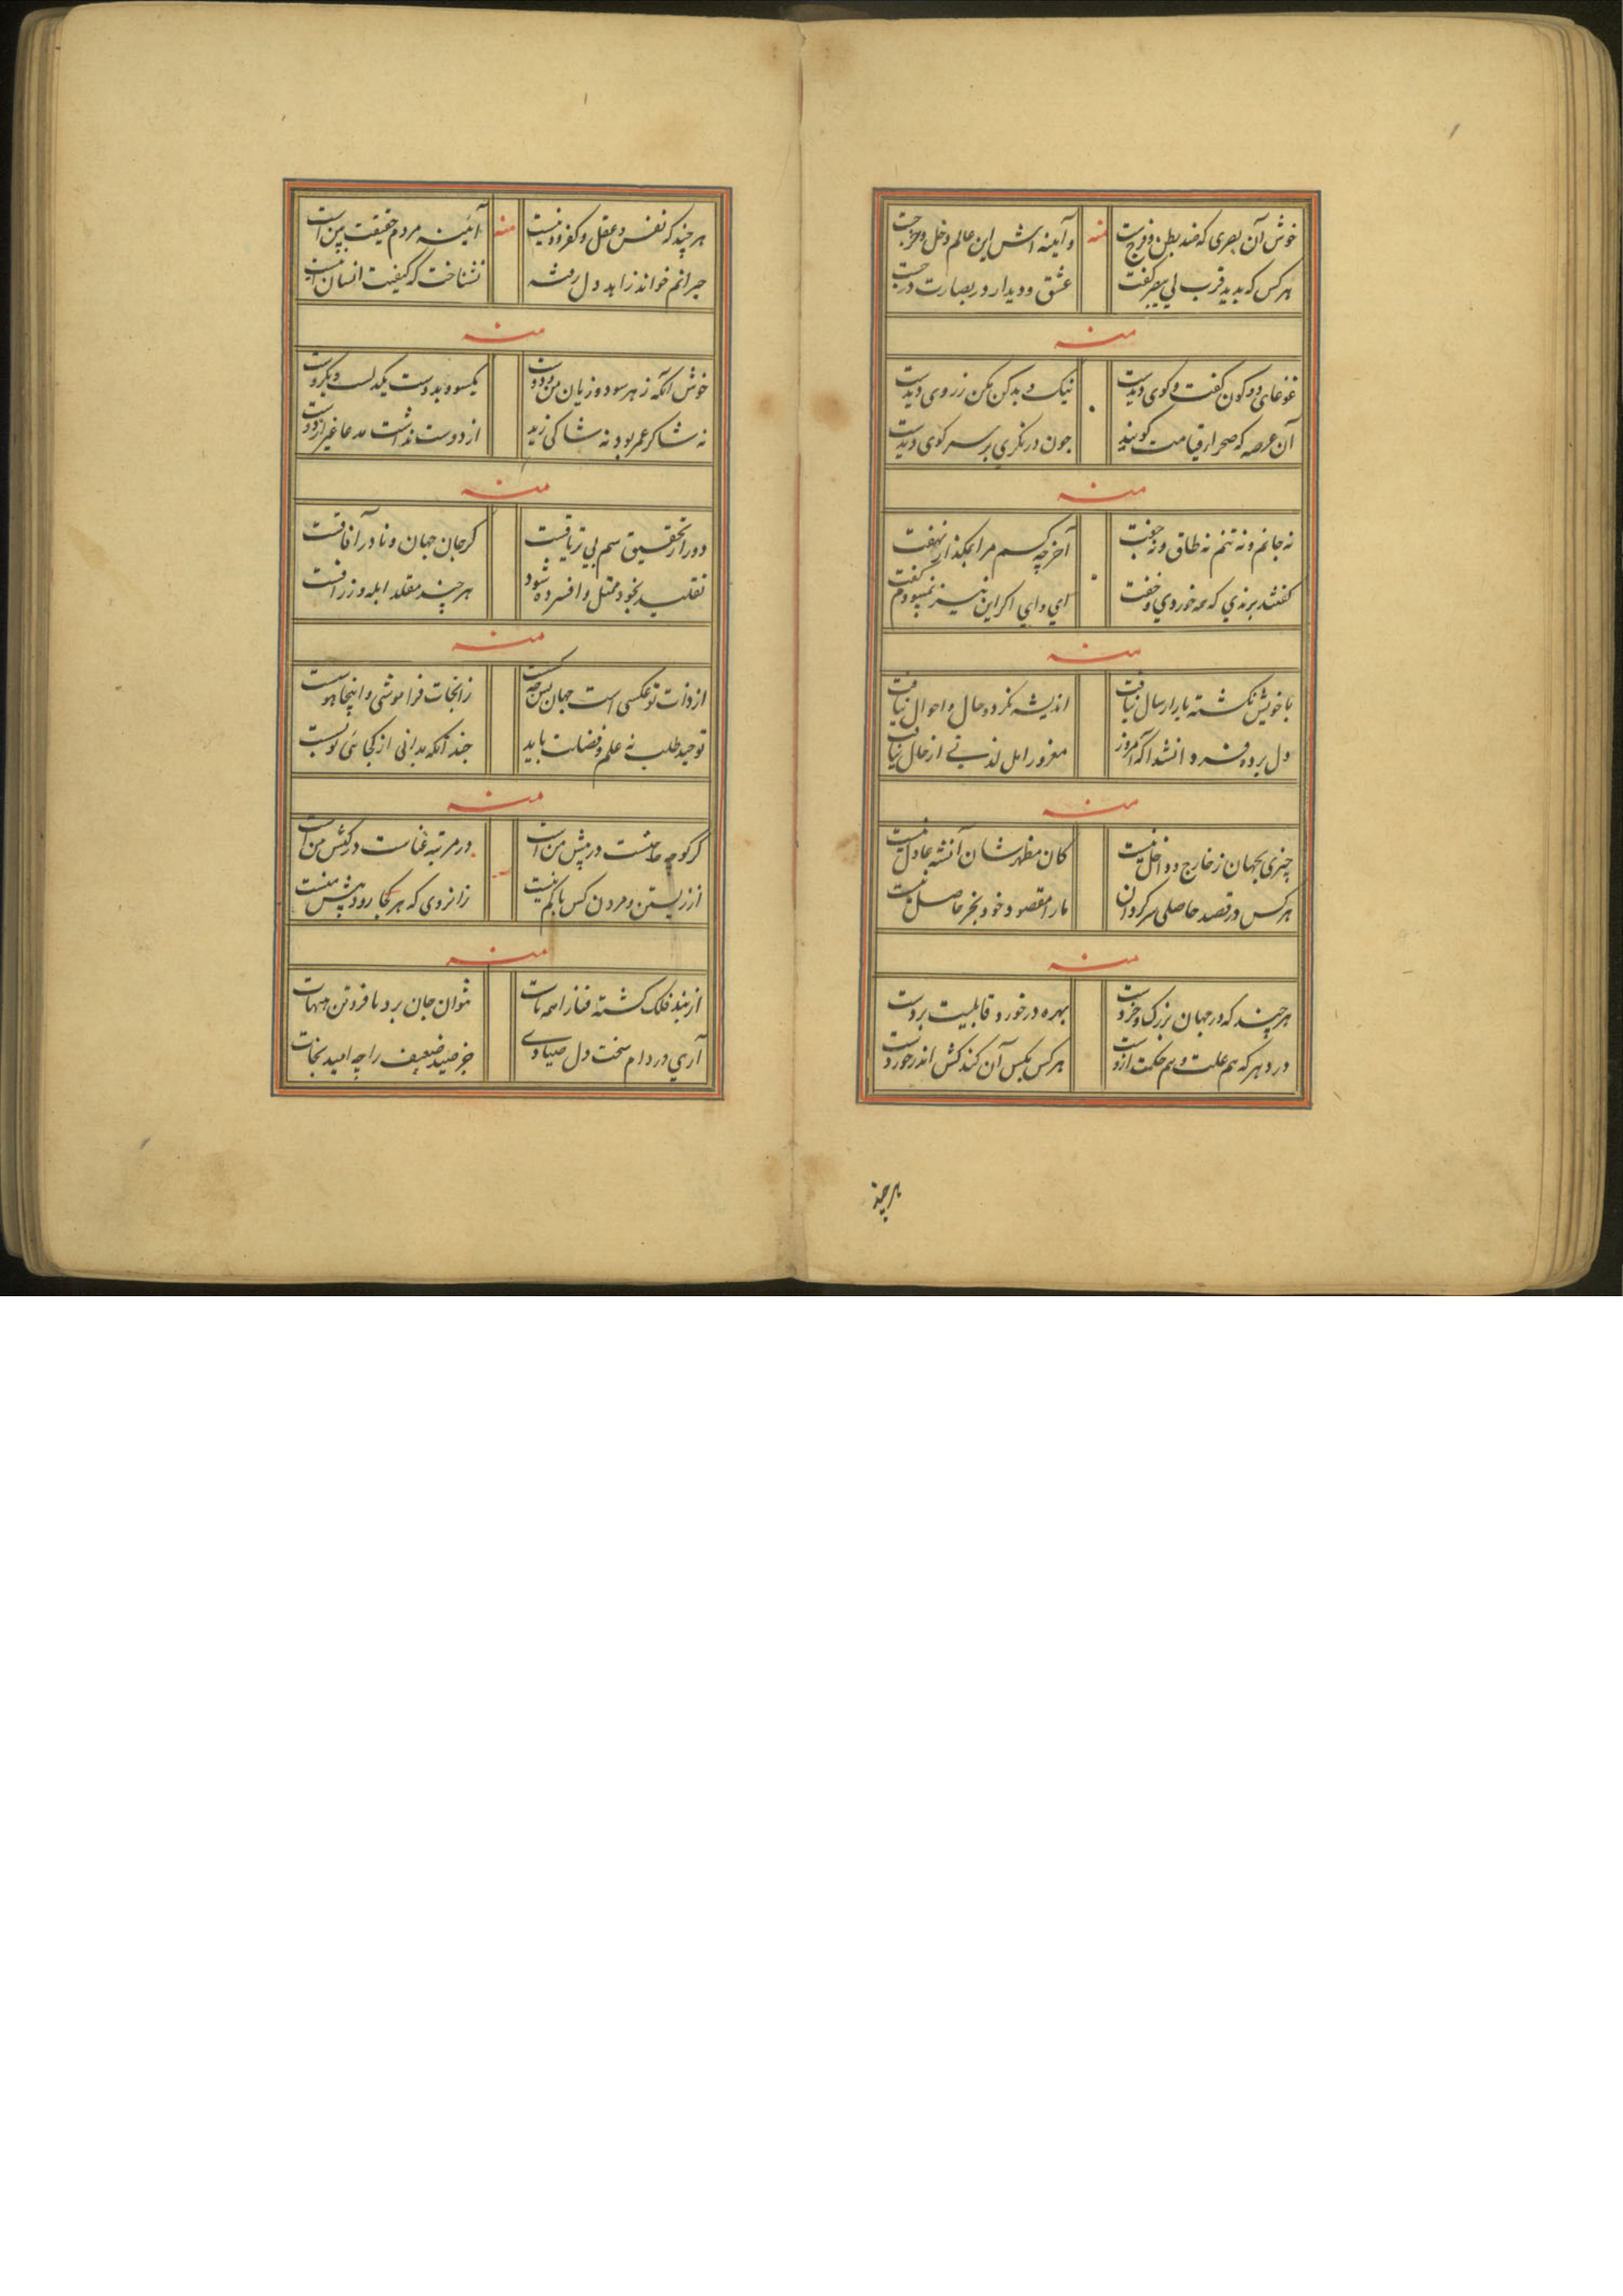 خوش آن بصری که ضد بطن و فرجست منه و آیینه اش این عالم دخل و خرجست
هر کس که بدید قرب بی بصر گفت عشق و دیدار در بصارت درجست
منه
غوغای دو کون گفت و گوی دیدست نیک و بد کن مکن ز روی دیدست
آن عرصه که صحرا قیامت گویند چون در نگری بر سر کوی دیدست
منه
نه جانم و نه تنم نه طاق و نه جفت آخر چه کسم مرا بمگذار نهفت
گفتند برندی که مه خوردی و خفت ای وای اگر این نیز نمیبودم گفت
منه
با خویش نگشته یار ارسال نیافت اندیشه نکرد و حال و احوال نیافت
دل برده فردا نشد آگه امروز مغرور امل لذتی از حال نیافت
منه
چیزی بجهان ز خارج و داخل نیست کان مظهر شان آنشه عادل نیست
هر کس در قصد حاصلی سرگردان ما را مقصود خود بجز حاصل نیست
منه
هر چند که در جهان بزرگ و خردست بهره در خورد قابلیت بردست
در دهر که هم علت و هم حکمت ازوست هر کس بکس آن کند کش اندر خوردست
هر چند
هر چند که نفس و عقل و کفر و دینیست منه آئینه مردم حقیقت بین است
حیرانم خواند زاهد دل رفته نشناخت که کیفیت انسان اینست
منه
خوش آنکه ز هر سود و زیان من و دوست یکسو و بدوست یکدلست و یکروست
نه شاکر عمرو بود نه شاکی زید از دوست نداشت مدعا غیر از دوست
منه
دور از تحقیق سم بی تریاقست گر جان جهان و نادر آفاقست
تقلید بخود مقل و افسرده شود هر چند مقلد ابله و زراقست
منه
از ذات تو عکسی است جهان بس چه کست زانجات فراموشی و اینجا هوست
توحید طلب نه علم و فضلت باید چندانکه بدانی از کجائی تو بست
منه
گر کوچه عامست در پیش من است در مرتبه غناست در کیش من است
از زیستن و مردن کس باکم نیست زانروی که هر کجا رود پیش منست
منه
از بند فلک گشته فنا را همه مات نتوان جان برد با فرو تن هیهات
آری در دام سخت دل صیادی جز صید ضعیف را چه امید نجات